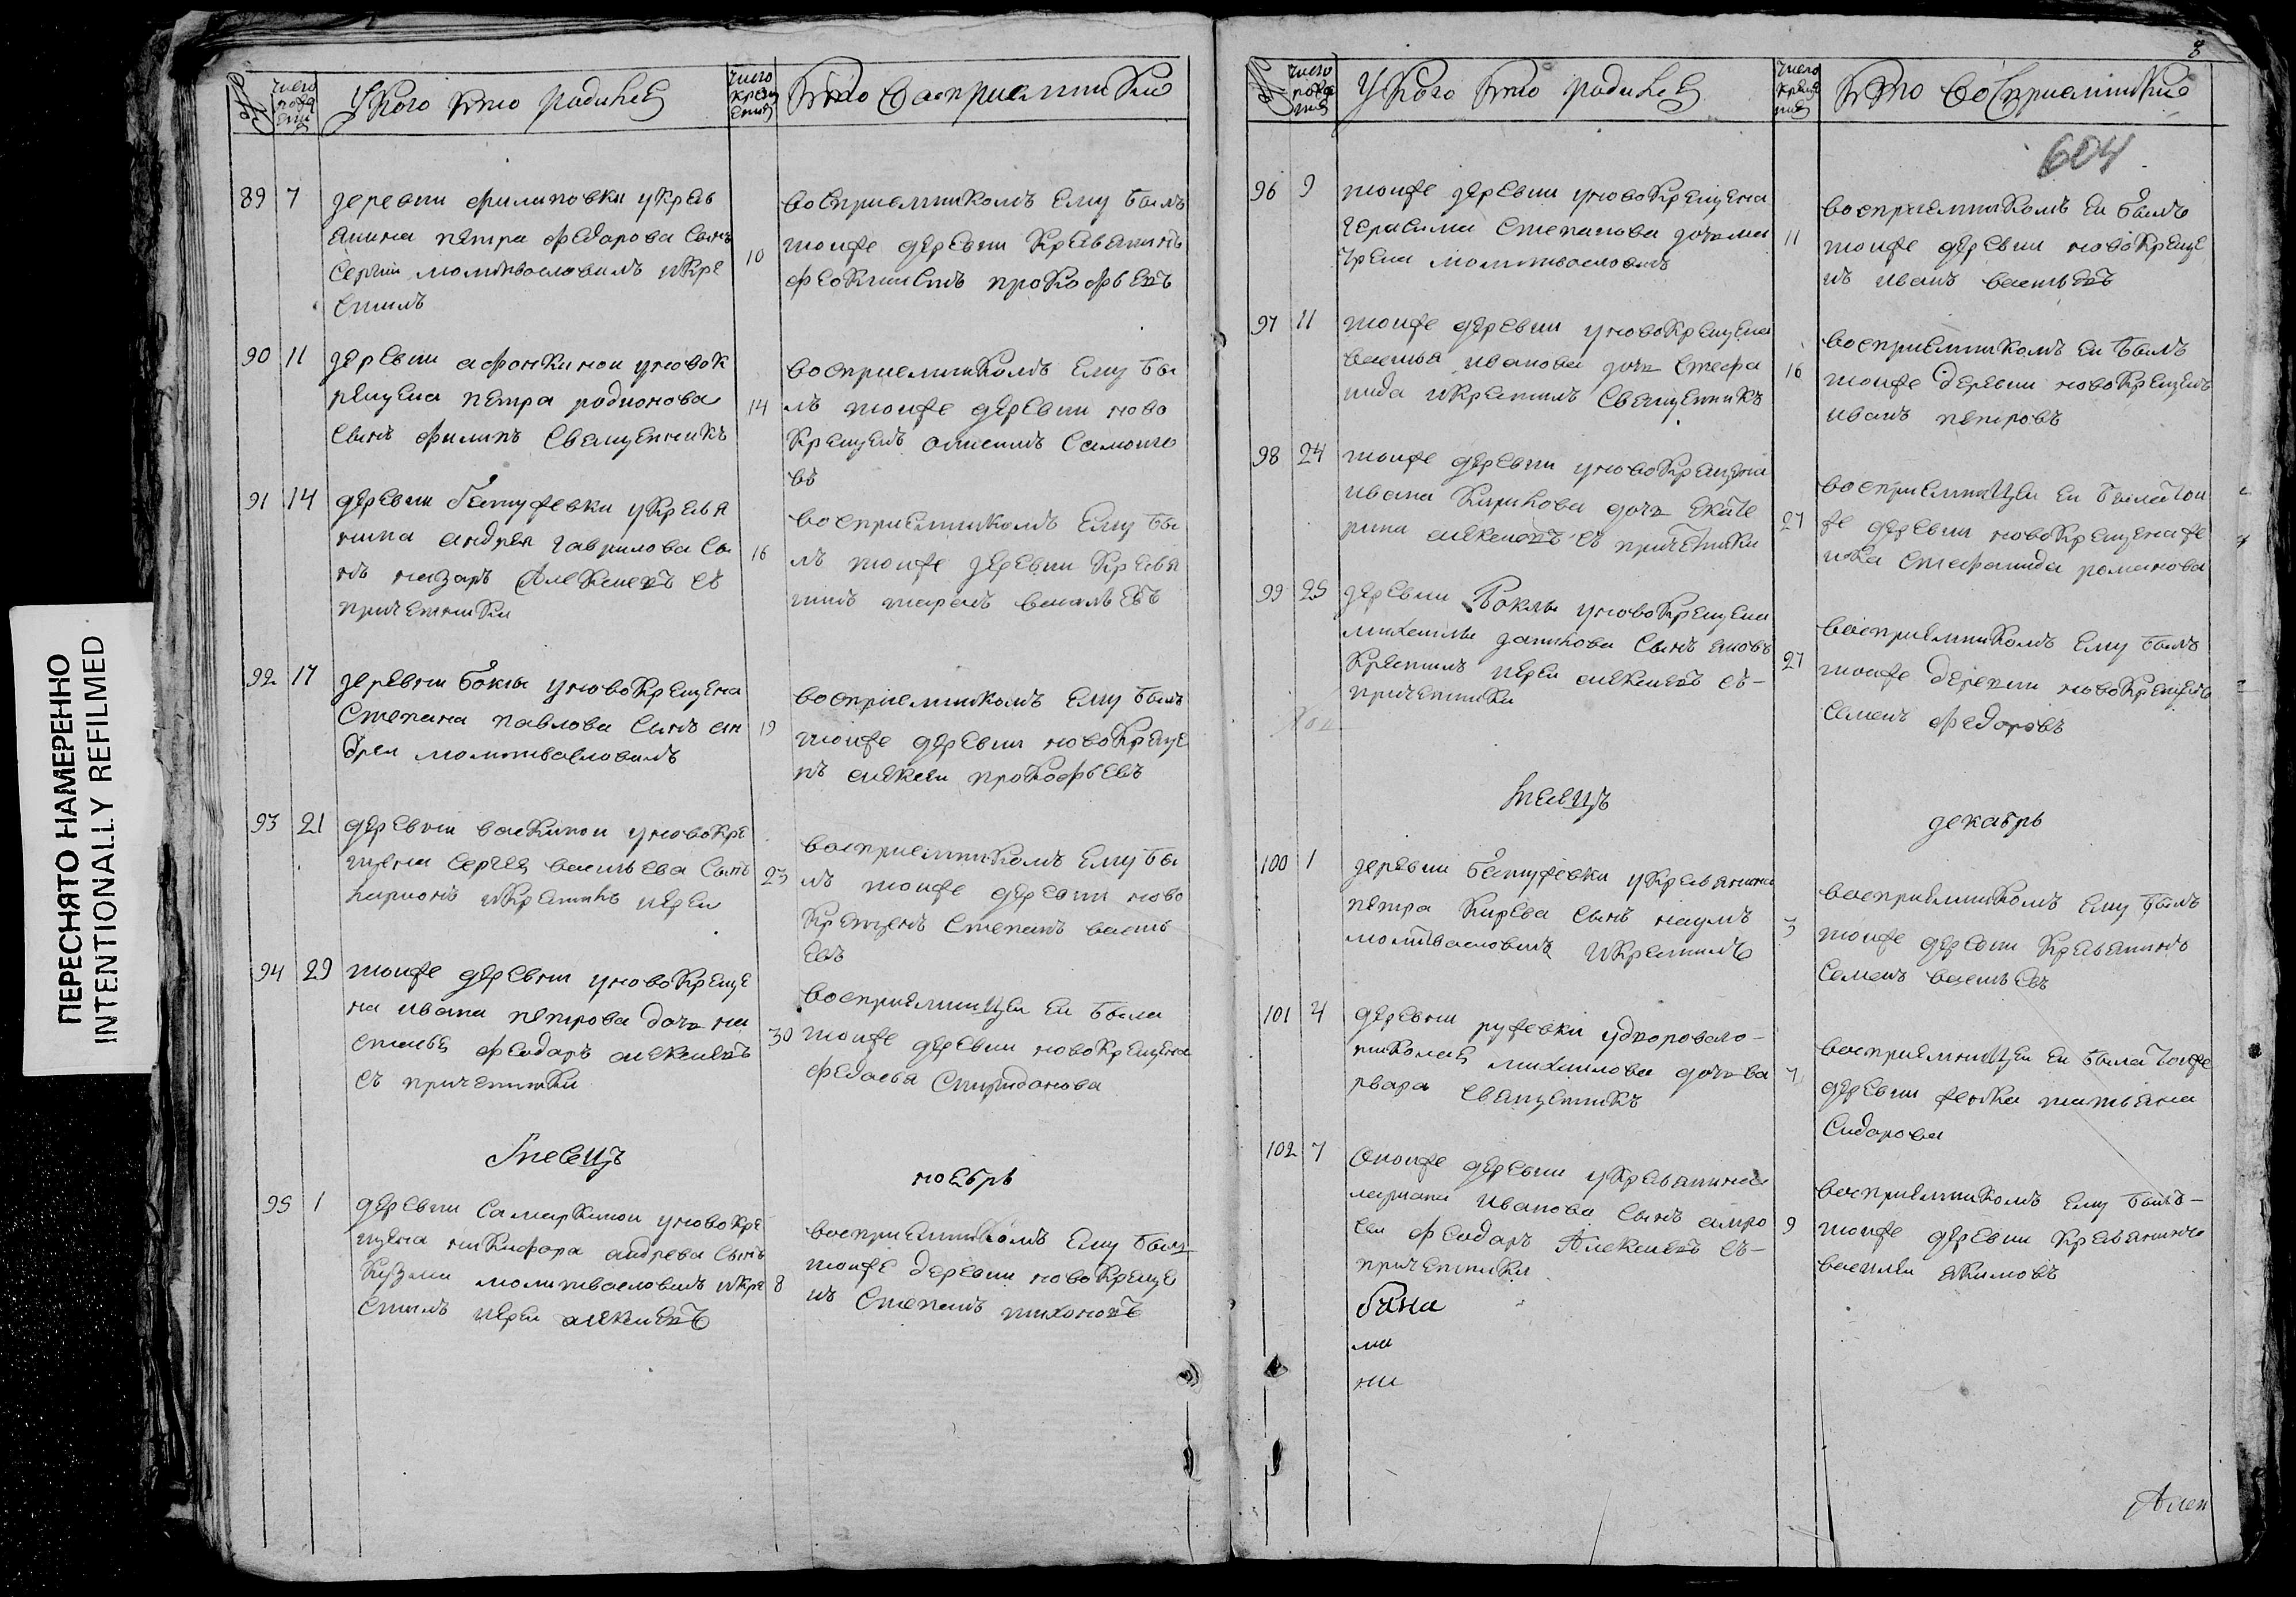 ПЕРЕСНЯТО НАМЕРЕННО
INTENTIONALLY REFILMED
№
число рождения
У кого кто родился
число крещения
Кто восприемники
89 7
деревни филиповки укресь
янина петра Федорова сынъ
Сергии молитвословилъ икре
стилъ
10
восприемникомъ ему былъ
тойже деревни кресьянинъ
феоктистъ прокофьевъ
90 11
деревни афонкиной уновок
рещена петра родионова
сынъ филипъ священникъ
14
восприемникомъ ему бы
лъ тойже деревни ново
крещенъ
въ
91 14
деревни укресья
нина андрея гаврилова сы
нъ назаръ Алексеевъ съ
причетники
16
восприемникомъ ему бы
лъ тойже деревни кресья
нинъ тарасъ
92 17
деревни боклы уновокрещена
Степана павлова сынъ ан
дреи молитвословилъ
19
восприемникомъ ему былъ
тойже деревни новокреще
нъ алексеи прокофьевъ
93 21
деревни васкиной уновокре
щена сергея васильева сынъ
ларионъ икрестилъ иереи
23
восприемникомъ ему бы
лъ тойже деревни ново
крещенъ Степанъ василь
евъ
94 29
тойже деревни уновокреще
на ивана петрова дочь на
стасья феодаръ алексеевъ
съ причетники
30
восприемницеи еи была
тойже деревни новокрещена
федосья Спиридонова
месецъ
ноебрь
95 1
деревни Самаркиной уновокре
щена никифора андреева сынъ
кузма молитвословилъ икре
стилъ иереи алексеевъ
8
восприемникомъ ему былъ
тойже деревни новокреще
нъ Степанъ тихоновъ
8
№
число рождения
У кого кто родился
число крещения
Кто восприемники
604
96 9
тойже деревни уновокрещена
герасима Степанова дочь ма
молитвословилъ
11
восприемникомъ еи былъ
тойже деревни новокреще
нъ иванъ васильевъ
97 11
тойже деревни уновокрещена
василья иванова дочь стефа
нида икрестилъ священникъ
16
восприемникомъ еи былъ
тойже деревни новокрещенъ
иванъ петровъ
98 24
тойже деревни уновокрещена
ивана кирилова дочь екате
рина алексеевъ съ причетники
27
восприемницеи еи была тои
же деревни новокрещена же
нка стефанида романова
99 25
деревни Боклы уновокрещена
михаилы данилова сынъ яковъ
крестилъ иереи алексеевъ съ-
причетники
27
восприемникомъ ему былъ
тойже деревни новокрещенъ
семенъ федоровъ
месецъ
декабрь
100 1
деревни укресьянина
петра кирева сынъ наумъ
молитвословилъ икрестилъ
3
восприемникомъ ему былъ
тойже деревни кресьянинъ
семенъ васильевъ
101 4
деревни ружевки удворовово-
николая михаилова дочь ва
рвара священникъ
7
восприемницеи еи была тойже
деревни женка татьяна
Сидорова
102 7
Онойже деревни укресьянина
лариана иванова сынъ амро
сеи феодаръ Алексеевъ съ-
причетники
9
восприемникомъ ему былъ-
тойже деревни кресьянинъ
василеи якимовъ
ми
ни
Алек